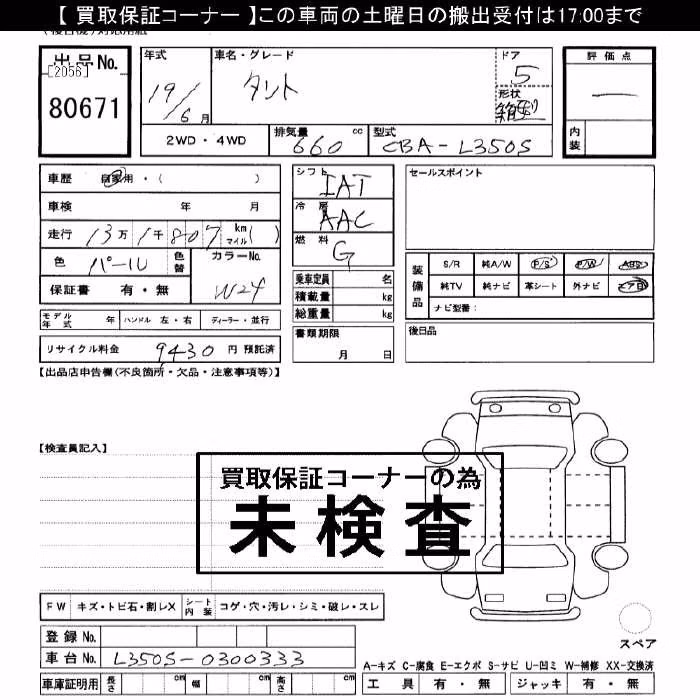 【 買取保証コーナー 】この車両の土曜日の搬出受付は17:00まで
出品No. [2056] 80671
年式 19/6月
車名・グレード タント
ドア 5
形状 箱型
評価点 —
内装
2WD・4WD
排気量 660 cc
型式 CBA-L350S
車歴 自家用・( )
車検 年 月
走行 13万1千807 km マイル( )
色 パール 色替
カラーNo. W24
保証書 有・無
シフト IAT
冷房 AAC
燃料 G
乗車定員 名
積載量 kg
総重量 kg
書類期限 月 日
セールスポイント
装備品 S/R 純A/W P/S P/W ABS
純TV 純ナビ 革シート 外ナビ エアB
ナビ型番:
後日品
モデル年式 年 ハンドル 左・右 ディーラー・並行
リサイクル料金 9430 円 預託済
【出品店申告欄(不良箇所・欠品・注意事項等)】
【検査員記入】
買取保証コーナーの為
未検査
FW キズ・トビ石・割レX シート内装 コゲ・穴・汚レ・シミ・破レ・スレ
登録 No.
車台 No. L350S-0300333
車庫証明用 長さ cm 幅 cm 高さ cm
スペア
A-キズ C-腐食 E-エクボ S-サビ U-凹ミ W-補修 XX-交換済
工具 有・無 ジャッキ 有・無